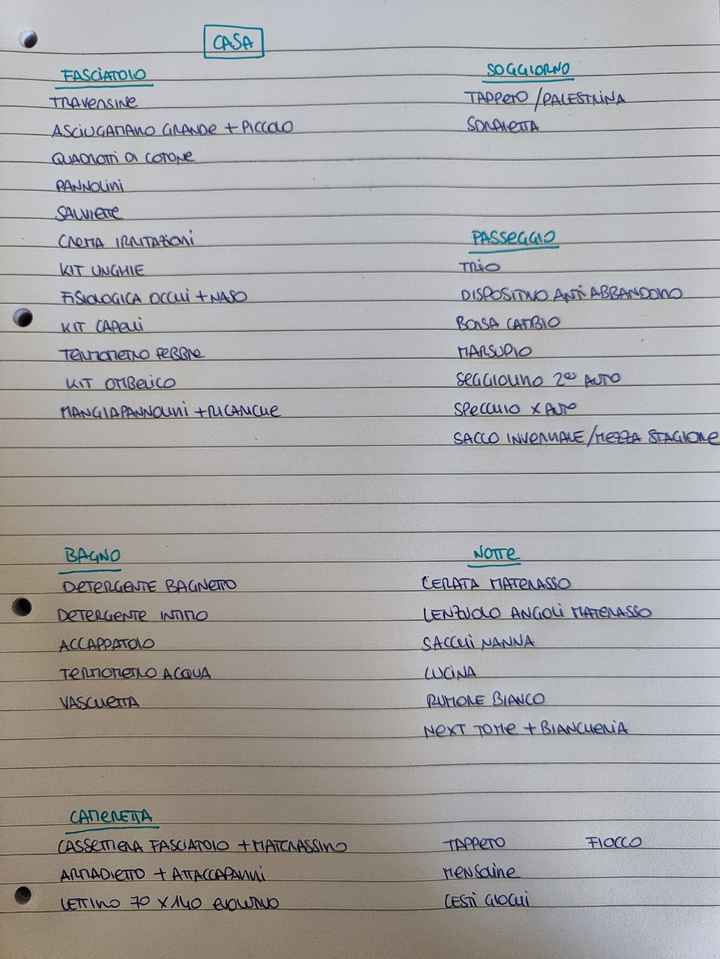 CASA
FASCIATOIO
TRAVERSINE
ASCIUGAMANO GRANDE + PICCOLO
QUADROTTI DI COTONE
PANNOLINI
SALVIETTE
CREMA IRRITAZIONI
KIT UNGHIE
FISIOLOGICA OCCHI + NASO
KIT CAPELLI
TERMOMETRO FEBBRE
KIT OMBELICO
MANGIAPANNOLINI + RICARICHE
SOGGIORNO
TAPPETO / PALESTRINA
SDRAIETTA
PASSEGGIO
TRIO
DISPOSITIVO ANTI ABBANDONO
BORSA CAMBIO
MARSUPIO
SEGGIOLINO 2ª AUTO
SPECCHIO X AUTO
SACCO INVERNALE / MEZZA STAGIONE
BAGNO
DETERGENTE BAGNETTO
DETERGENTE INTIMO
ACCAPPATOIO
TERMOMETRO ACQUA
VASCHETTA
NOTTE
CERATA MATERASSO
LENZUOLO ANGOLI MATERASSO
SACCHI NANNA
LUCINA
RUMORE BIANCO
NEXT TO ME + BIANCHERIA
CAMERETTA
CASSETTIERA FASCIATOIO + MATERASSINO
ARMADIETTO + ATTACCAPANNI
LETTINO 70 X 140 EVOLUTIVO
TAPPETO
MENSOLINE
CESTI GIOCHI
FIOCCO